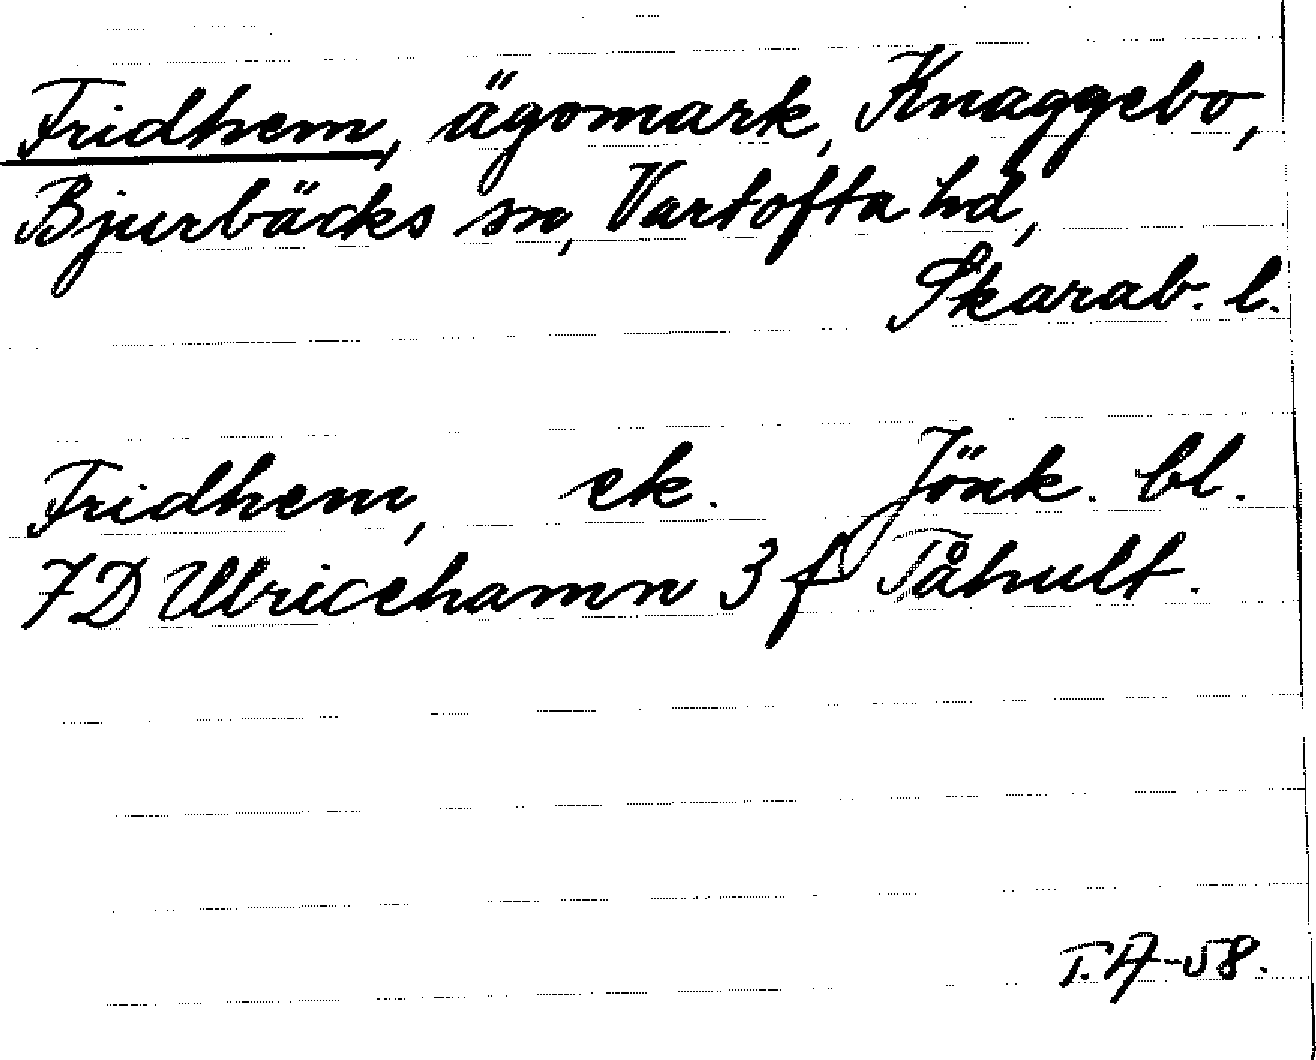 Fridhem, ägomark, Knaggebo,
Bjurbäcks sn, Vartofta hd,
Skarab. l.
Fridhem, ek. Jönk. bl.
7D Ulricehamn 3 f Tåhult.
T.A-58.